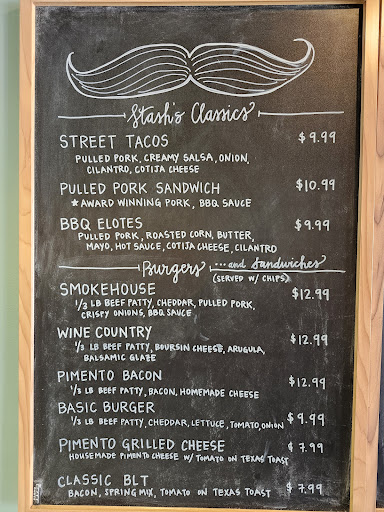 Stash's Classics
STREET TACOS $9.99
PULLED PORK, CREAMY SALSA, ONION,
CILANTRO, COTIJA CHEESE
PULLED PORK SANDWICH $10.99
★ AWARD WINNING PORK, BBQ SAUCE
BBQ ELOTES $9.99
PULLED PORK, ROASTED CORN, BUTTER,
MAYO, HOT SAUCE, COTIJA CHEESE, CILANTRO
Burgers ...and Sandwiches
(SERVED W/ CHIPS)
SMOKEHOUSE $12.99
1/3 LB BEEF PATTY, CHEDDAR, PULLED PORK,
CRISPY ONIONS, BBQ SAUCE
WINE COUNTRY $12.99
1/3 LB BEEF PATTY, BOURSIN CHEESE, ARUGULA,
BALSAMIC GLAZE
PIMENTO BACON $12.99
1/3 LB BEEF PATTY, BACON, HOMEMADE CHEESE
BASIC BURGER $9.99
1/3 LB BEEF PATTY, CHEDDAR, LETTUCE, TOMATO, ONION
PIMENTO GRILLED CHEESE $7.99
HOUSEMADE PIMENTO CHEESE W/ TOMATO ON TEXAS TOAST
CLASSIC BLT $7.99
BACON, SPRING MIX, TOMATO ON TEXAS TOAST